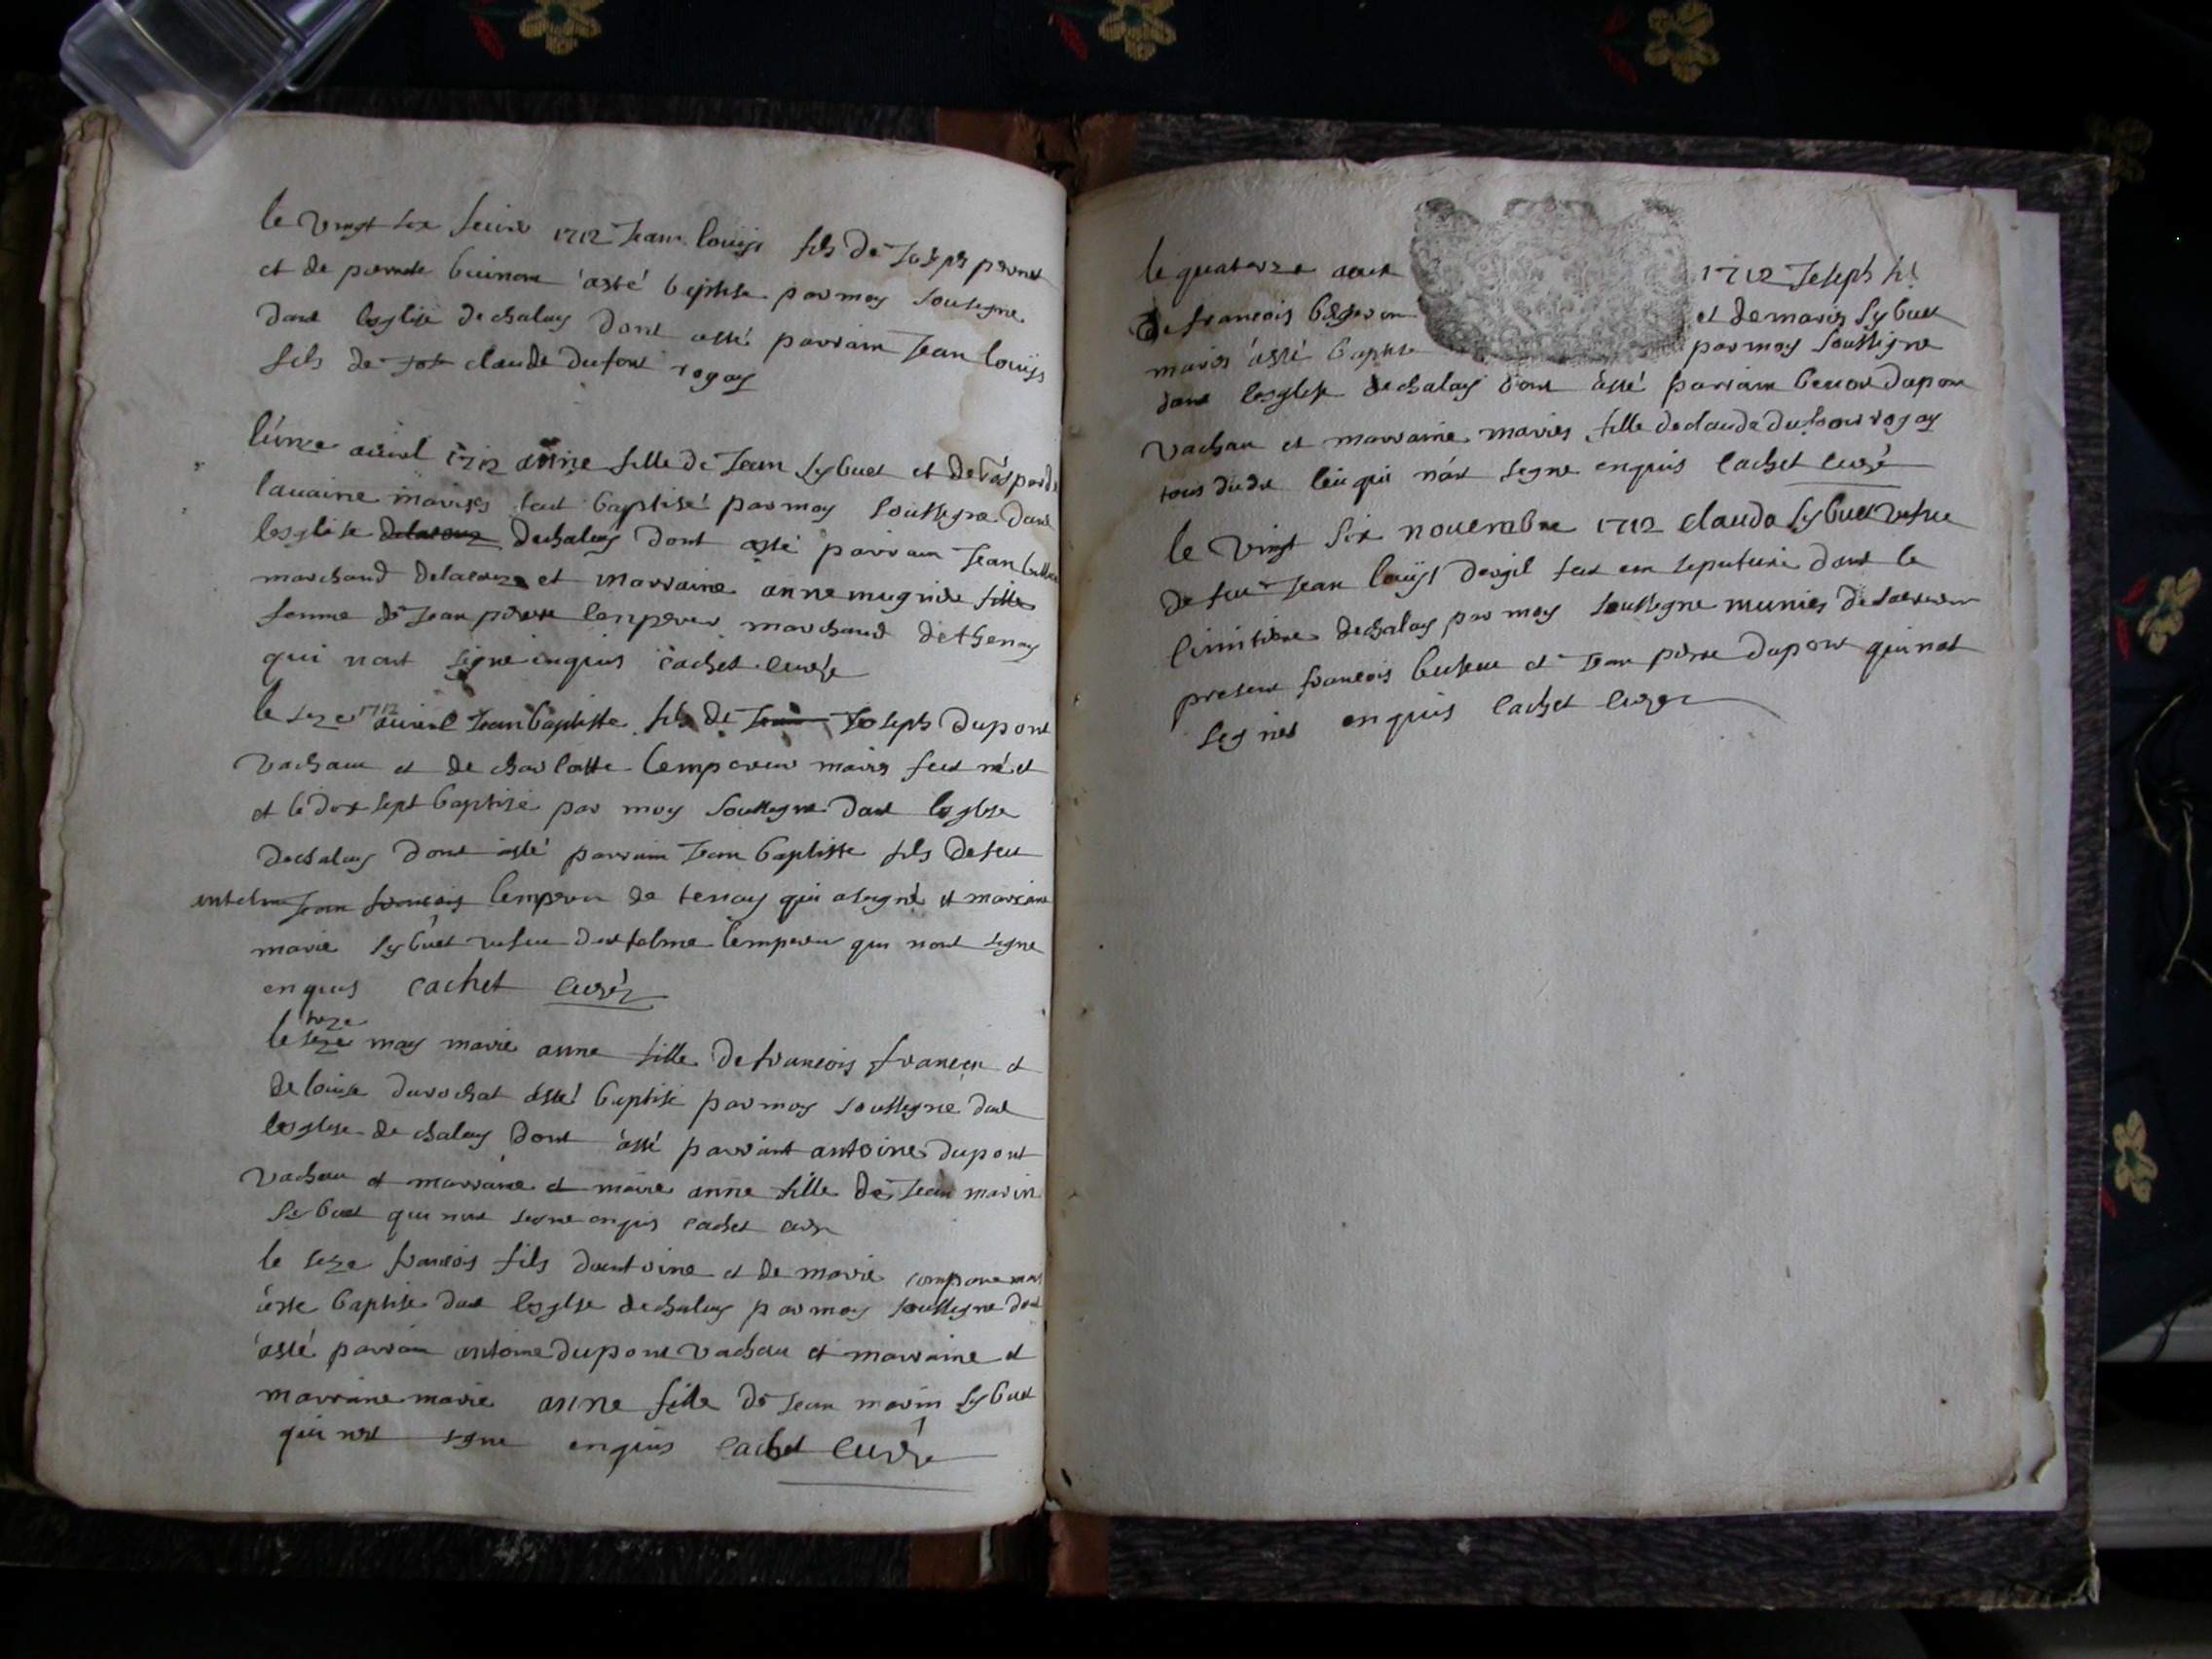 le vingt six 1712 Jean louijs fils de Joseph pernet
et de guinon 'asté par moy sousigne
dans lesglise de chaley dont asté parrain Jean louijs
fils de claude dufour rogay
l'unze avril 1712 anne fille de Jean sybuet et de
mariés baptisé par moy soussigne dans
lesglise delacouz dechaley dont asté parrain Jean
marchand delacouz et marraine anne mugnier fille
femme de Jean pierre lempereur marchand dethenay
qui nont signe enquis cachet curé
le seze 1712 avril Jean baptiste fils de Jean Joseph dupont
vachau et de charlotte lempereur mariés né et
et le dix sept baptisé par moy soussigne dans lesglise
dechaley dont asté parrain Jean baptiste fils de feu
Jean francois lempereur de tenay qui a signé et
marie sybuet vefve lempereur qui nont signe
enquis cachet curé
le seze treze may marie anne fille de francois francon et
de louise durochat asté baptisé par moy soussigne dans
lesglise de chaley dont asté parraint antoine dupont
vachau et marraine et marie anne fille de Jean marin
sybuet qui nont signe enquis cachet curé
le seze francois fils dantoine et de marie
asté baptisé dans lesglise dechaley par moy soussigne dont
asté parrain antoine dupont vachau et marraine et
marraine marie anne fille de Jean marin sybuet
qui nont signe enquis cachet curé
le quatorze aout 1712 Joseph fils
de francois et de marie sybuet
mariés asté baptisé par moy soussigne
dans lesglise dechaley dont asté parrain dupont
vachau et marraine marie fille de claude dufour rogay
tous dudit lieu qui nont signe enquis cachet curé
le vingt six novembre 1712 claude sybuet vefve
de feu Jean louijs en sepulture dans le
cimitiere dechaley par moy soussigne munies
present francois et Jean pierre dupont qui nont
signés enquis cachet curé